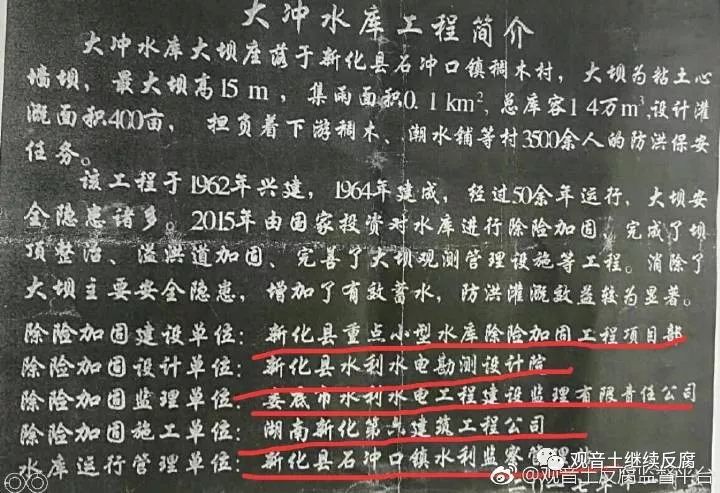 大冲水库工程简介
大冲水库大坝座落于新化县石冲口镇稠木村，大坝为粘土心
墙坝，最大坝高15m，集雨面积0.1km²，总库容14万m³，设计灌
溉面积400亩，担负着下游稠木、潮水铺等村3500余人的防洪保安
任务。
该工程于1962年兴建，1964年建成，经过50余年运行，大坝安
全隐患诸多。2015年由国家投资对水库进行除险加固，完成了坝
顶整治、溢洪道加固、完善了大坝观测管理设施等工程。消除了
大坝主要安全隐患，增加了有效蓄水，防洪灌溉效益较为显著。
除险加固建设单位：新化县重点小型水库除险加固工程项目部
除险加固设计单位：新化县水利水电勘测设计院
除险加固监理单位：娄底市水利水电工程建设监理有限责任公司
除险加固施工单位：湖南新化第六建筑工程公司
水库运行管理单位：新化县石冲口镇水利监察管理
观音土继续反腐
@观音土反腐监督平台